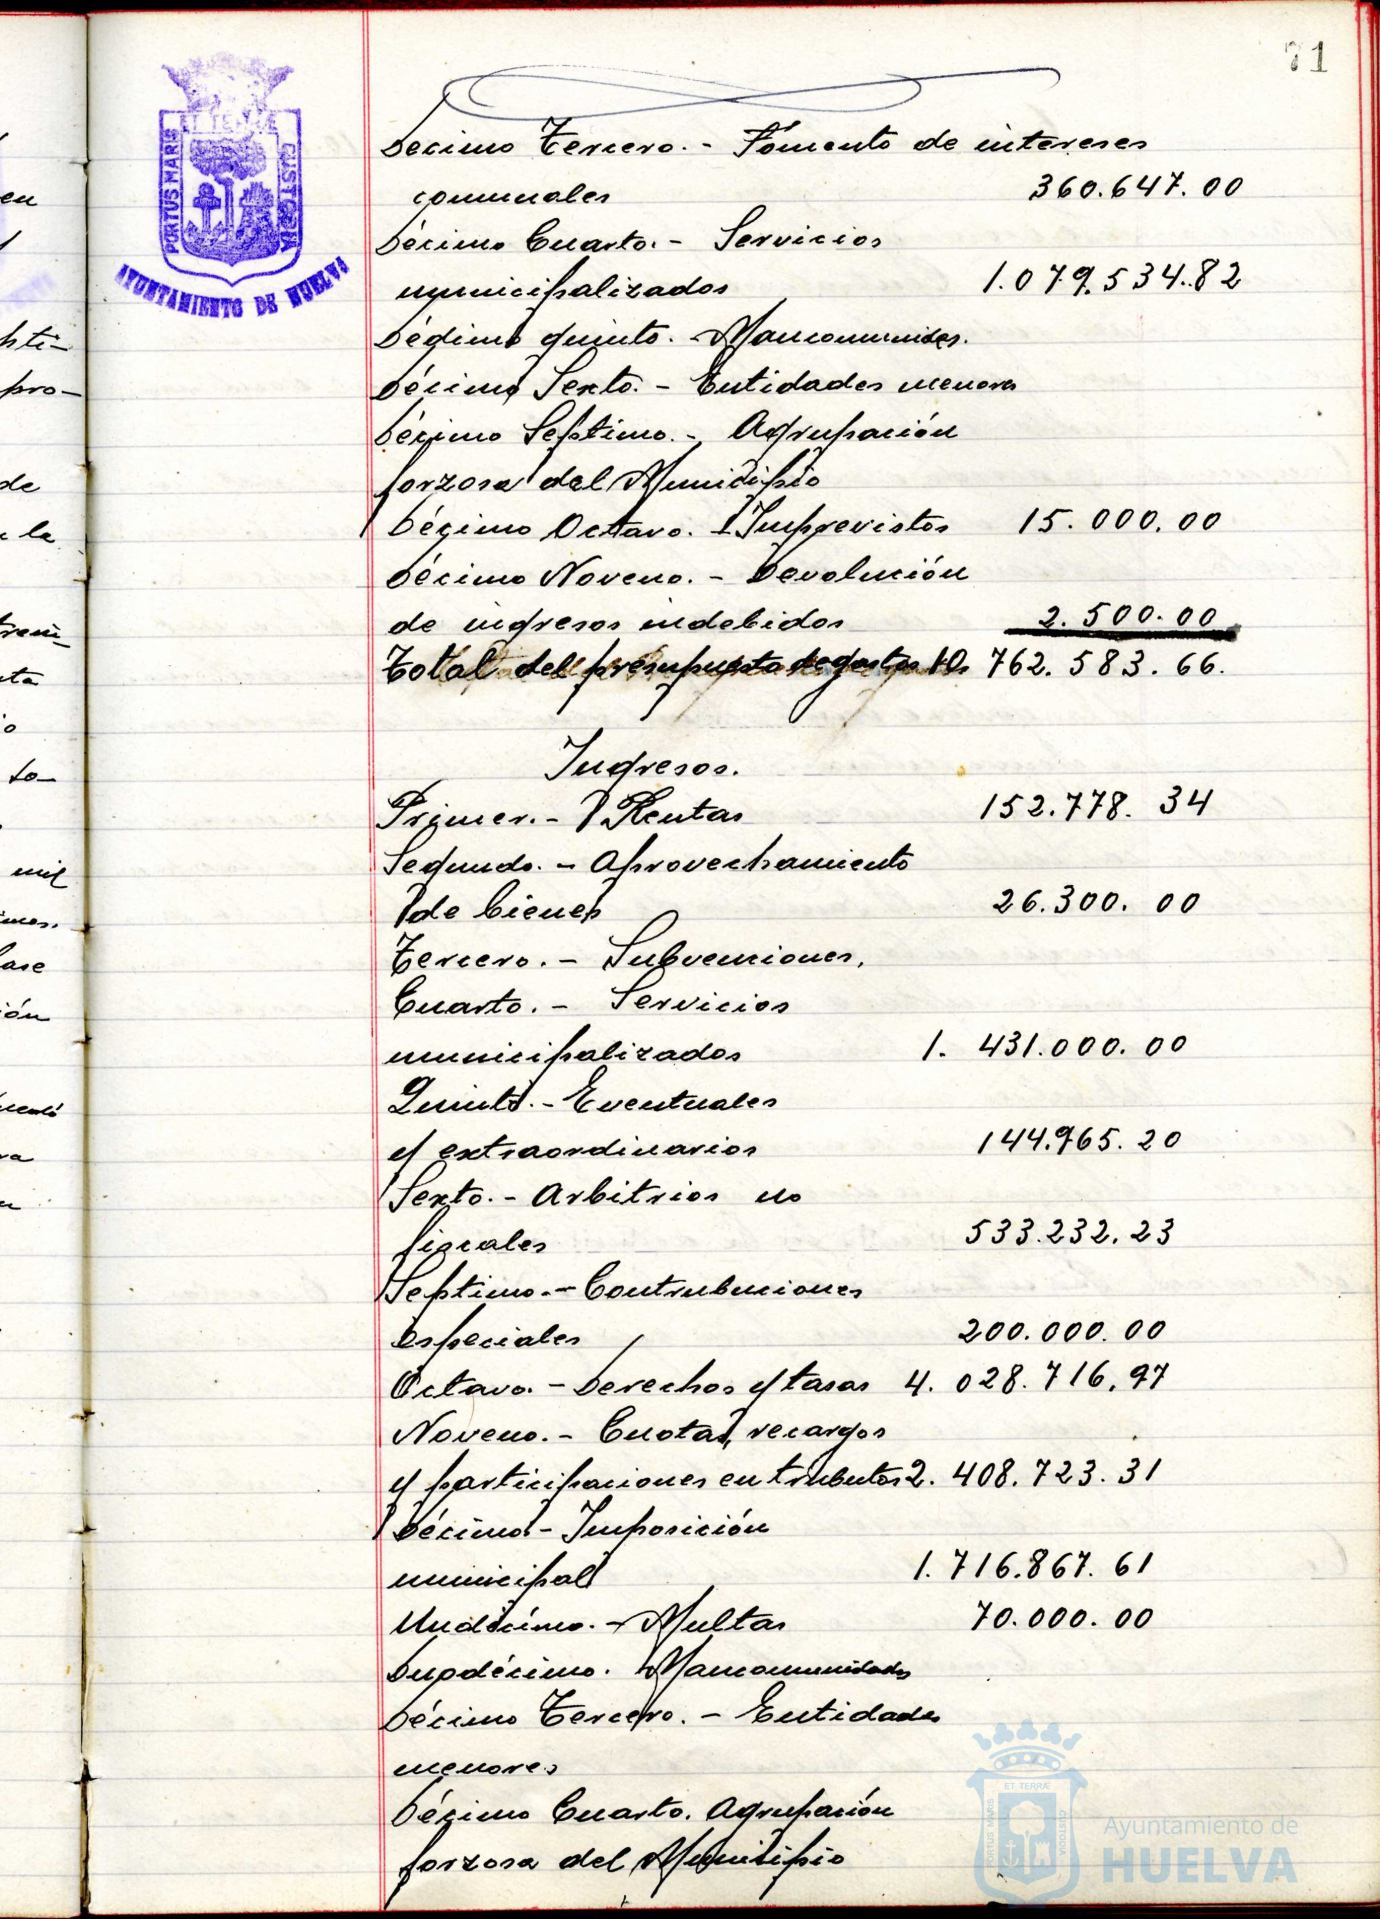 71
ET TERRAE
PORTUS MARIS
CUSTODIA
AYUNTAMIENTO DE HUELVA
Decimo Tercero. - Fomento de intereses
comunales 360.647.00
Décimo Cuarto. - Servicios
municipalizados 1.079.534.82
Décimo quinto. - Mancomunides.
Décimo Sexto. - Entidades menores
Décimo Septimo. - Agrupación
forzosa del Municipio
Décimo Octavo. - Imprevistos 15.000.00
Décimo Noveno. - Devolución
de ingresos indebidos 2.500.00
Total del presupuesto de gastos 10. 762.583.66.
Ingresos.
Primer. - Rentas 152.778.34
Segundo. - Aprovechamiento
de bienes 26.300.00
Tercero. - Subvenciones.
Cuarto. - Servicios
municipalizados 1.431.000.00
Quinto. - Eventuales
y extraordinarios 144.965.20
Sexto. - Arbitrios no
fiscales 533.232.23
Septimo. - Contribuciones
especiales 200.000.00
Octavo. - Derechos y tasas 4.028.716,97
Noveno. - Cuotas, recargos
y participaciones en tributos 2.408.723.31
Décimo - Imposición
municipal 1.716.867.61
Undécimo. - Multas 70.000.00
Duodécimo. Mancomunidades
Décimo Tercero. - Entidades
menores
Décimo Cuarto. Agrupación
forzosa del Municipio
ET TERRÆ
PORTUS MARIS
CUSTODIA
Ayuntamiento de
HUELVA
en
de
la
to-
mil
ión